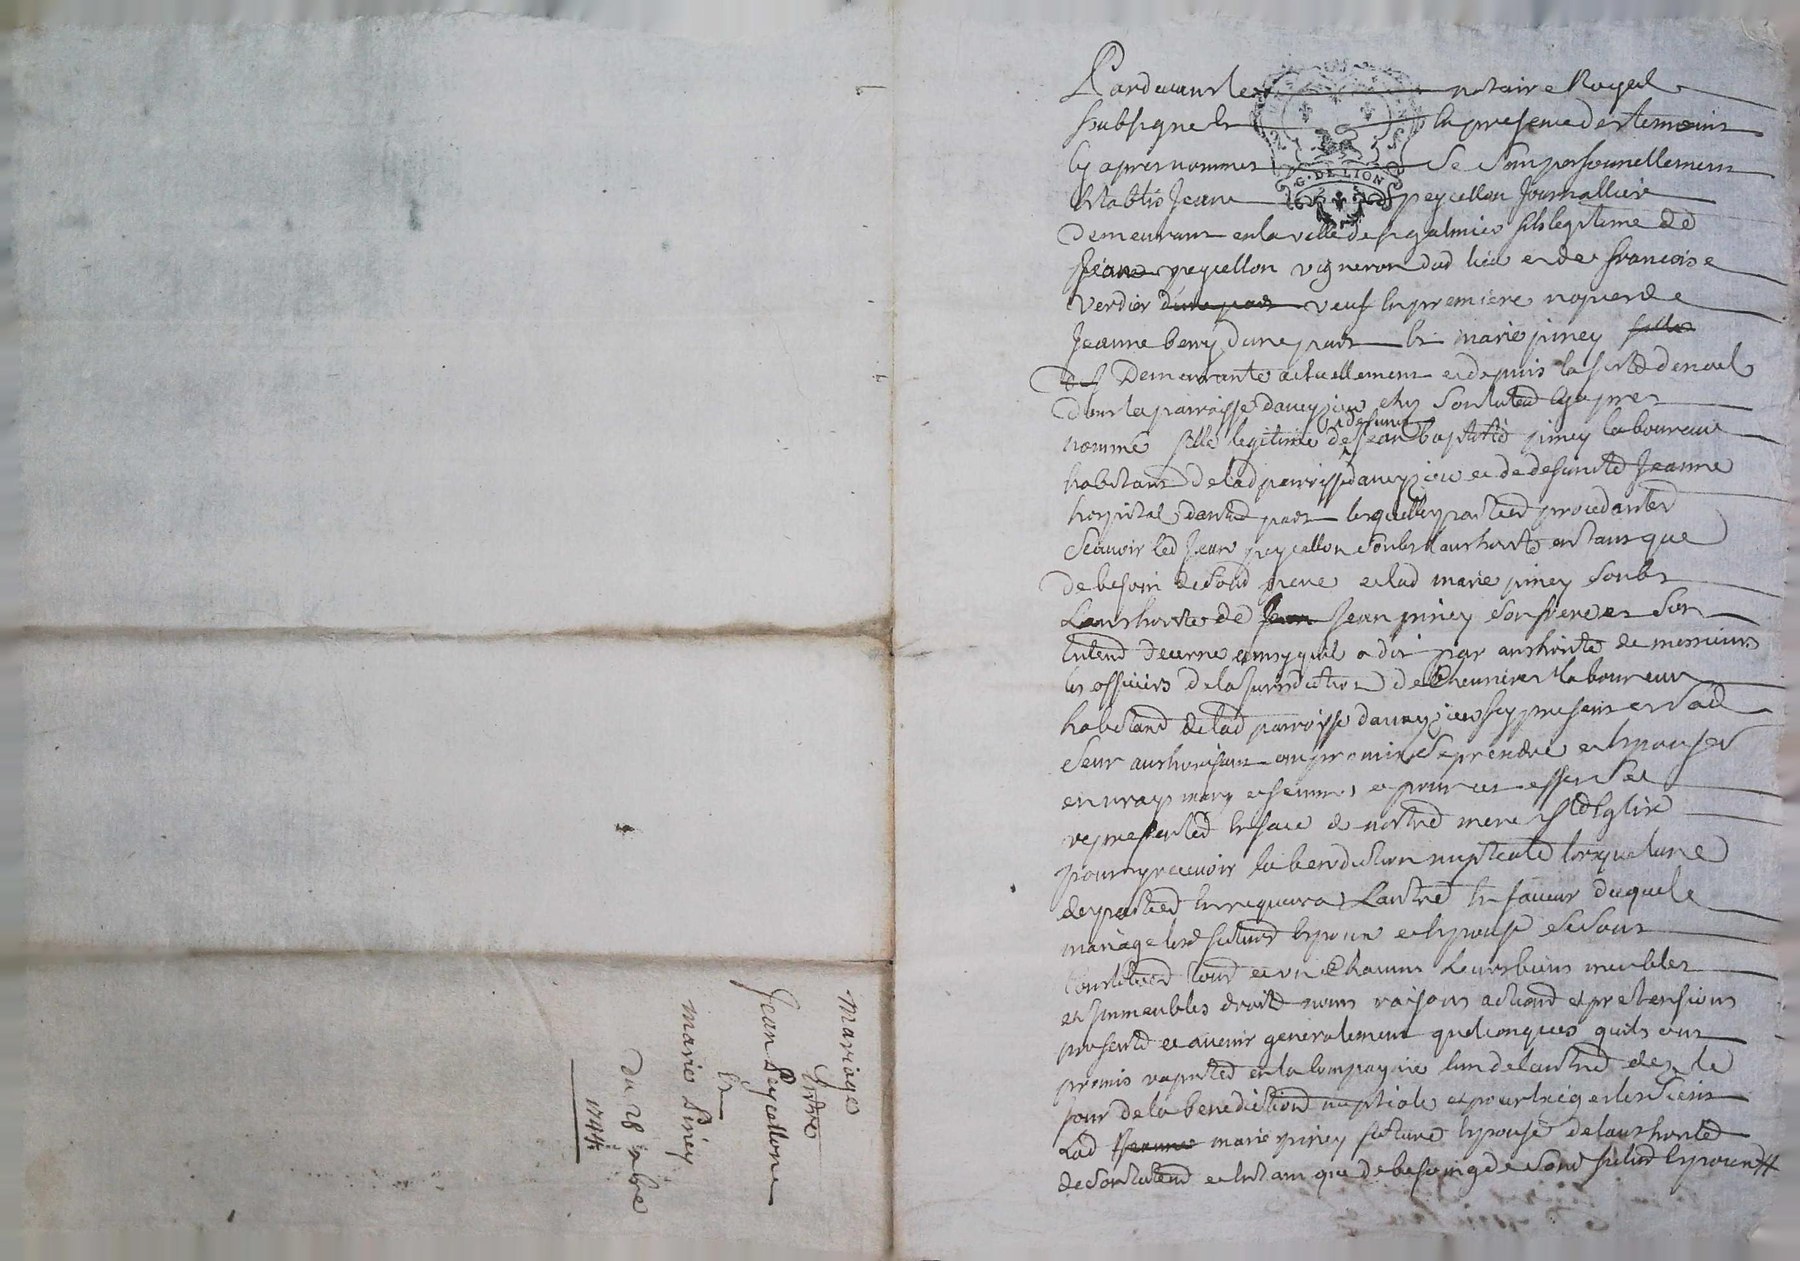 Pardevant le notaire Royal
soubsigne et en presence des temoins
cy apres nommes se sont personnellement
etablis Jean peycellon Journallier
demeurant en la ville de st galmier fils legitime de
Jean peycellon vigneron dud lieu et de francoise
verdier d'une part veuf en premiere nopces de
Jeanne berry dune part et marie piney fille
de demeurante actuellement et depuis la feste de noel
dans la parroisse daveyzieu chez son tuteur cy apres
nommé fille legitime de defunt Jean baptiste piney laboureur
habitant de lad parroisse daveyzieu et de defuncte Jeanne
hospital dautre part lesquelles parties procedantes
scavoir led Jean peycellon soubs lauthorité en tant que
de besoin de sond pere et lad marie piney soubs
Lauthorite de Jean Jean piney son frere et son
tuteur decerne ainsy quil a dit par authorité de messieurs
les officiers de la Jurisdiction de Chevrieres laboureur
habitant de lad parroisse daveyzieu icy present et sad
seur authorisant on promis se prendre et epouser
en vrays mary et femme et pour cet effet se
representer en face de nostre mere Ste Eglise
pour y recevoir la benediction nuptiale lorsque lune
des parties en requerra Lautre en faveur duquel
mariage lesd futurs epoux et epouse se sont
constitués tous et un Chacuns leurs biens meubles
et Immeubles droits noms raisons actions et pretensions
presents et avenir generalement quelconques quils ont
promis raporter en la Compagnie lun de lautre des le
jour de la benediction nuptiale et pour
Lad Jeanne marie piney future epouse de lauthorité
de son tuteur et en tant que de besoing de sond futur epoux
G. DE LION
mariage
Entre
Jean Peycellon
Et
marie Piney
du 28 xbre
1744